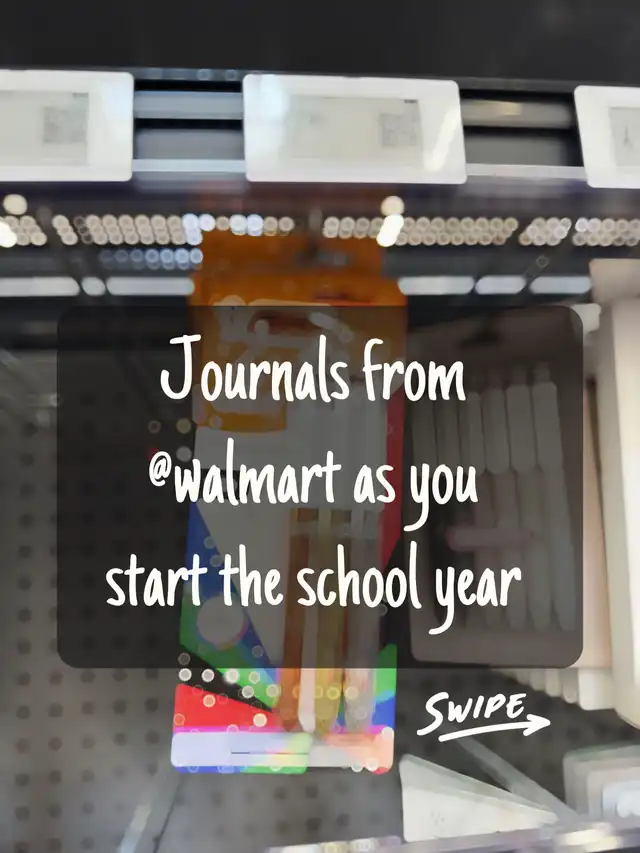 Journals from
@walmart as you
start the school year
SWIPE